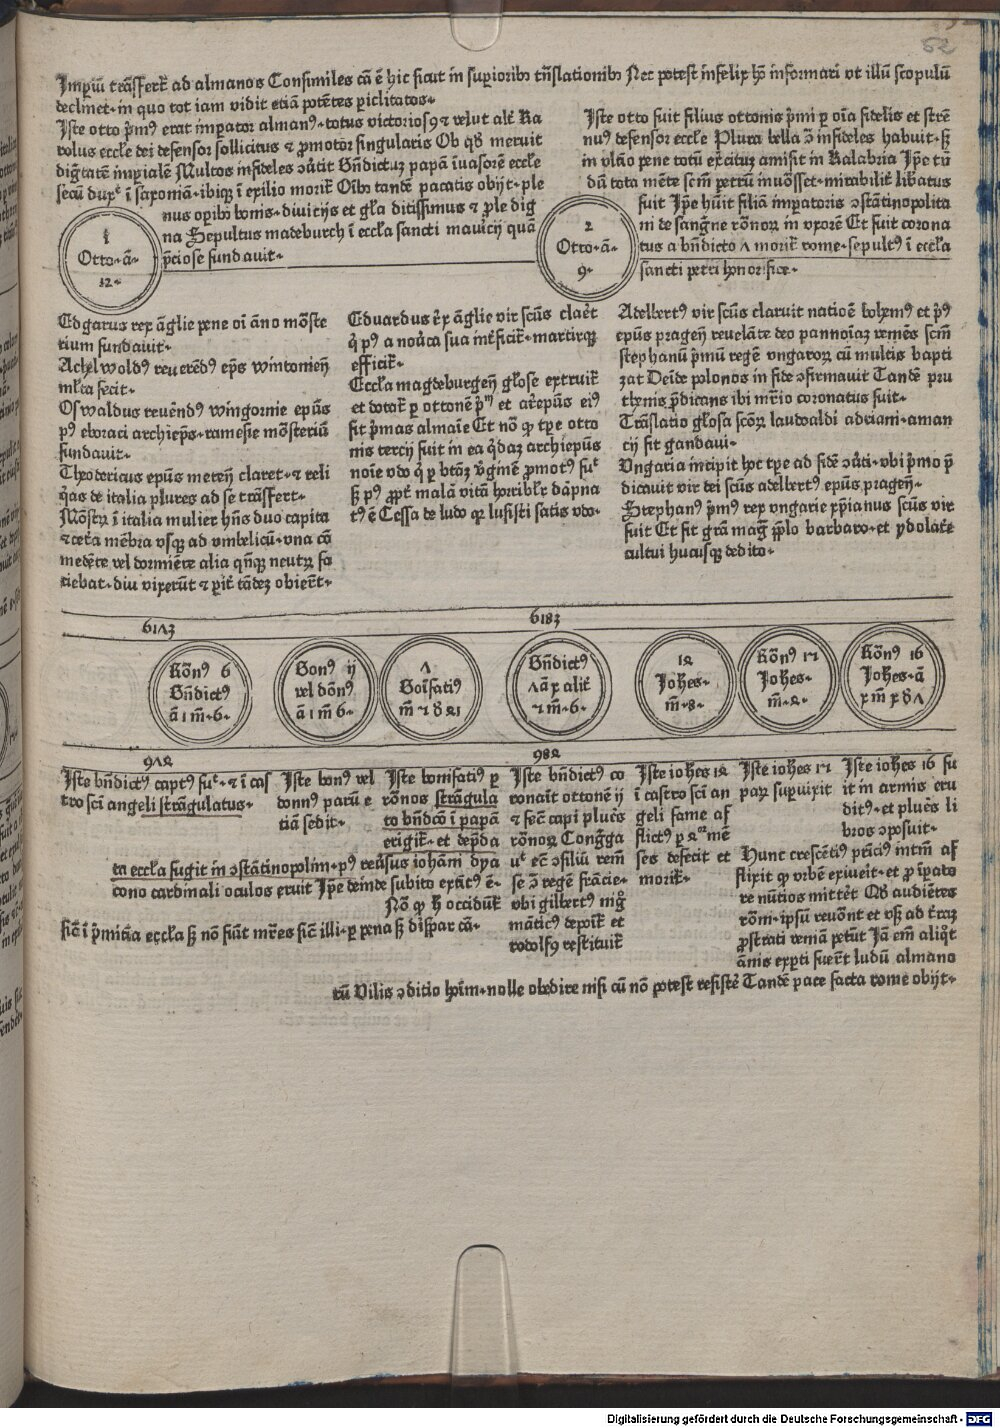 52
Imꝑiū trãſferr̄t ad almanos Conſimiles cā ē hic ſicut in ſuꝑioribꝫ trñſlationibꝫ Nec poteſt infelix hō informari vt illū ſcopulū
declinet· in quo tot iam vidit etiā potētes ꝑiclitatos·
Iſte otto p̄mꝰ erat imꝑator almanꝰ· totus victorioſꝰ ⁊ velut alt̄ Ka
rolus eccłe dei defenſor ſollicitus ⁊ ꝓmotor ſingularis Ob qd̄ meruit
dignitatē imꝑialē Multos infideles ↄūtit Bn̄dictuꝫ papā īuaſorē eccłe
ſecū duxᵗ ī ſaxoniā· ibiqꝫ ī exilio morit̄ Oībꝫ tandē pacatis obijt· ple
nus opibꝫ bonis· diuicijs et gła ditiſſimus ⁊ ꝓle dig
na Sepultus madeburch ī eccła ſancti mauicij quā
p̄cioſe fundauit·
1
Otto·ā·
12·
Iſte otto fuit filius ottonis p̄mi ꝑ oīa fidelis et ſtrē
nuꝰ defenſor eccłe Plura bella ↄ̄ infideles habuit· ſꝫ
in vl̄āo pene totū exc̄itū amiſit in Kalabria Ip̄e tū
dū tota mēte ſcm̄ petrū inuōſſet· mirabilit̄ libatus
fuit Ip̄e hūit filiā imꝑatoris ↄſtātinopolita
ni de ſanḡne rōnoꝝ in vxorē Et fuit corona
tus a bn̄dicto Λ morit̄ rome· ſepultꝰ ī eccła
ſancti petri honorifice·
2
Otto·ā·
9·
Edgarus rex āglie pene oī āno mōſte
rium fundauit·
Achelwoldꝰ reuerēdꝰ eꝑs wintonieñ
młta fecit·
Oſwaldus reuēndꝰ wingornie epūs
pꝰ eboraci archieꝑs· rameſie mōſteriū
fundauit·
Theodericus epūs meteñ claret· ⁊ reli
q̄as de italia plures ad ſe trāſfert·
Mōſtꝝ ī italia mulier hn̄s duo capita
⁊ cet̄a mēbra vſqꝫ ad vmbelicū· vna cō
medēte vel dormiēte alia qn̄qꝫ neutꝝ fa
ciebat· diu vixerūt ⁊ ꝑit̄ tādeꝫ obierūt·
Eduardus ex āglie vir ſcūs claēt
q̄ pꝰ a nouca ſua int̄ficit̄· martirqꝫ
efficit̄·
Eccła magdeburgeñ głoſe extruit̄
et dotat̄ ꝑ ottonē p̄ᵐ et arepūs eiꝰ
fit p̄mas almaīe Et nō qꝫ tꝑe otto
nis tercij fuit in ea q̄daꝫ archiepūs
noīe vdo q̄ ꝑ btāꝫ v̄ginē ꝓmotꝰ fuᵗ
ſꝫ pꝰ ꝓpt̄ malā vitā horribłr dāpna
tꝰ ē Ceſſa de ludo qꝫ luſiſti ſatis vdo·
Adelbertꝰ vir ſcūs claruit natioē bohemꝰ et p̄ꝰ
epūs prageñ reuelāte deo pannoīaꝫ veniēs ſcm̄
ſtephanū p̄mū regē vngaroꝝ cū multis bapti
zat Deīde polonos in fide ↄfirmauit Tandē pru
thenis p̄dicans ibi mr̄io coronatus fuit·
Trāſlatio głoſa ſcōꝝ laudoaldi adriani· aman
cij fit gandaui·
Vngaria incipit hoc tꝑe ad fidē ↄūti· vbi p̄mo p̄
dicauit vir dei ſcūs adelbertꝰ epūs prageñ·
Stephanꝰ p̄mꝰ rex vngarie xp̄ianus ſcūs vir
fuit Et fit grā maḡ pp̄lo barbaro· et ydolat̄e
cultui hucuſqꝫ dedito·
61Λ3
6183
Kōnꝰ 6
Bn̄dictꝰ
ā 1 m̄·6·
Bonꝰ ij
vel dōnꝰ
ā 1 m̄ 6·
Λ
Boīfatiꝰ
m̄ 7 d 21
Bn̄dictꝰ
Λ ā x alit̄
7 m̄·6·
12
Johes·
m̄·8·
Kōnꝰ 17
Johes·
m̄·2·
Kōnꝰ 16
Johes·ā
x m̄ x d Λ
9Λ2
982
Iſte bn̄dictꝰ captꝰ fuᵗ· ⁊ ī caſ
tro ſcī angeli ſtrāgulatus·
Iſte bonꝰ vel
donnꝰ parū e
tiā ſedit·
Iſte bonifatiꝰ ꝑ
rōnos ſtrāgula
to bn̄dcō ī papā
erigit̄· et dep̄da
ta eccła fugit in ↄſtātinopolim· pꝰ reūſus iohāni dya
cono cardinali oculos eruit Ip̄e deinde ſubito extītꝰ ē·
Nō qꝫ h̄ occidūt̄
ſic̄ ī p̄mitīa eccła ſꝫ nō ſiūt mr̄es ſic̄ illi· ꝑ pena ſꝫ diſpar cā·
Iſte bn̄dictꝰ co
ronait ottonē ij
⁊ fec̄ capi plues
rōnoꝝ Congg̃a
uᵗ eē ↄſiliū rem̄
ſe ↄ̄ regē frācie·
vbi gilbertꝰ nig̊
māticꝰ depoit̄ et
rodolfꝰ reſtituit̄
Iſte iohes 12
ī caſtro ſcī an
geli fame af
flictꝰ ꝑ 2oꝝ mē
ſes defecit et
morit̄·
Iſte iohes 17
paꝝ ſupuixit
Iſte iohes 16 fu
it in armis eru
ditꝰ· et plues li
bros ↄpoſuit·
Hunc creſcētiꝰ p̄ncīꝰ intm̄ af
flixit qꝫ vrbē exiueit· et ꝓ īꝑato
re nūtios mittēt Qd̄ audiētes
rōni· ip̄ſu reuōnt et vſꝫ ad traꝫ
ꝓſtrati veniā petūt Jā em̄ aliq̄t
ānis exꝑti fuer̄t ludū almano
rū Vilis ↄditio hoim· nolle obedire niſi cū nō poteſt reſiſtē Tandē pace facta rome obijt·
Digitalisierung gefördert durch die Deutsche Forschungsgemeinschaft -
DFG